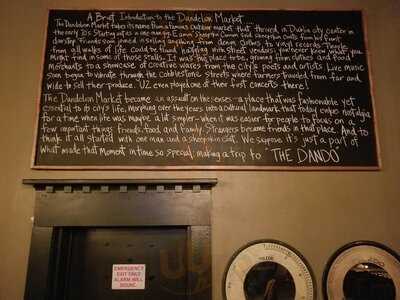 A Brief Introduction to the Dandelion Market
The Dandelion Market takes its name from a famous outdoor market that thrived in Dublin city center in
the early 70s. Starting as a one man
doorstep, friends soon joined in selling anything from denim clothes to vinyl records. They
from all walks of life could be found working with street vendors; you never knew
might find in some of those stalls. It was the place to be, growing from clothes and food
merchants to a showcase of creative wares from the city's poets and artists. Live music
soon began to vibrate through the cobblestone streets where farmers traveled from far and
wide to sell their produce. U2 even played one of their first concerts there!
The Dandelion Market became an assault on the senses - a place that was fashionable yet
essential to city life, morphing over the years into a cultural landmark that today evokes nostalgia
for a time when life was maybe a bit simpler - when it was easier for people to focus on a
few important things: friends, food, and family. Strangers became friends in that place. And to
think it all started with one man and a sheepskin coat. We suppose it's just a part of
what made that moment in time so special; making a trip to "THE DANDO"
EMERGENCY
EXIT ONLY
ALARM WILL
SOUND